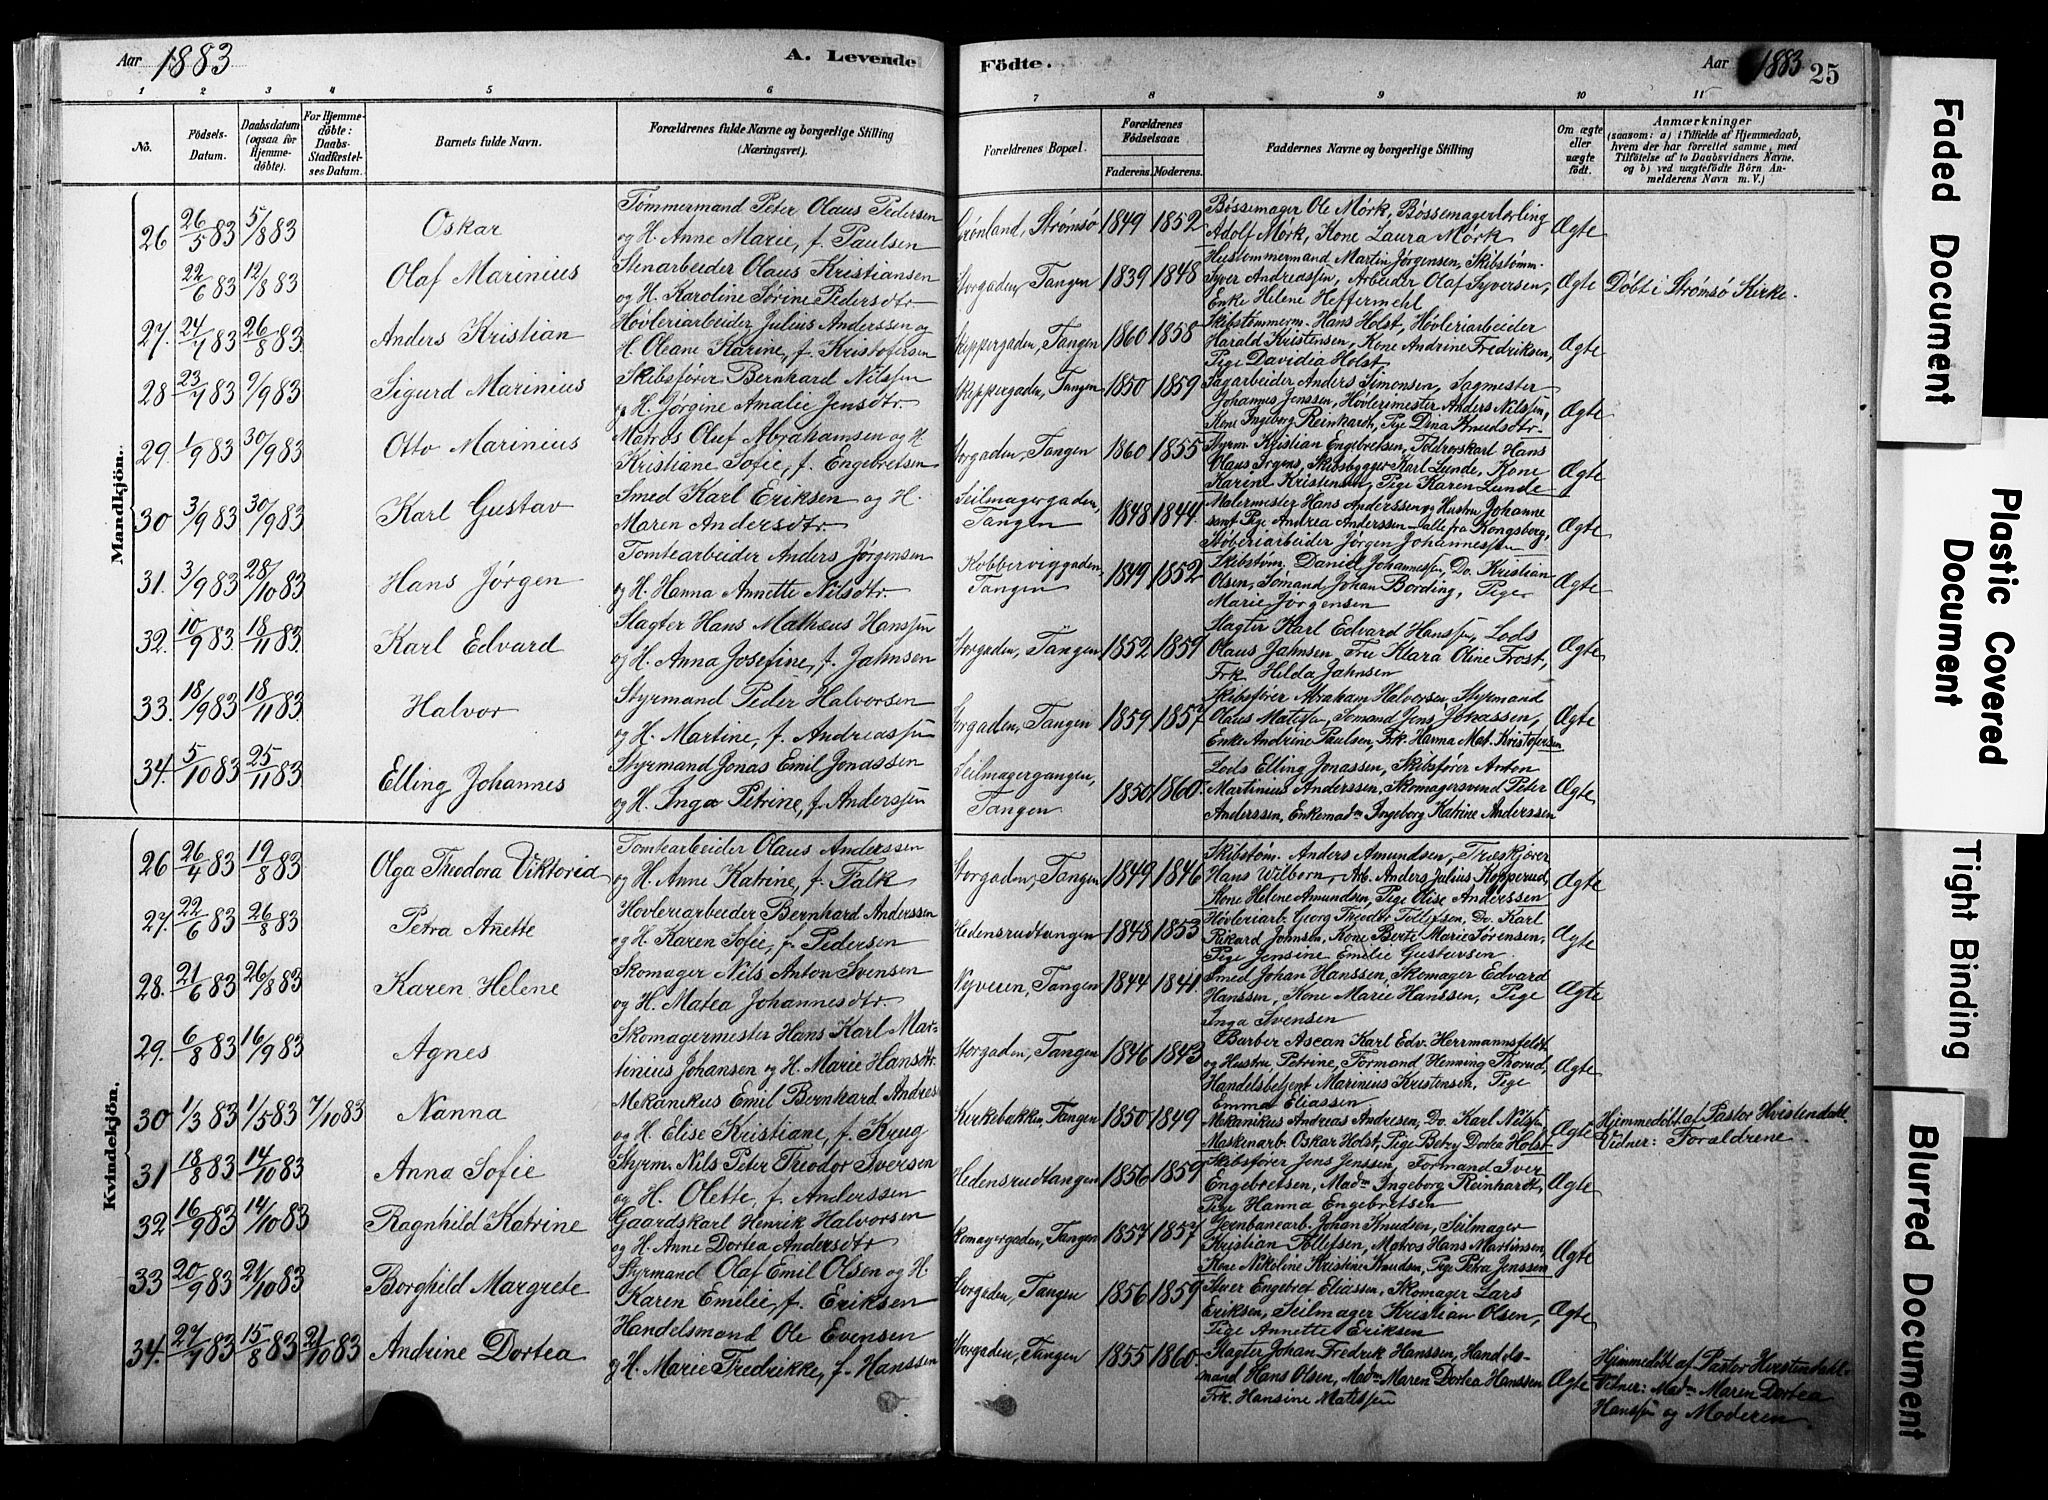 Aar 1883
A. Levende
Födte.
Aar 1883
25
1 2 3 4 5 6 7 8 9 10 11
No.
Födsels-
Datum.
Daabsdatum
(ogsaa for
Hjemme-
døbte).
For Hjemme-
døbte:
Daabs-
Stadfæstel-
ses Datum.
Barnets fulde Navn.
Forældrenes fulde Navne og borgerlige Stilling
(Næringsvei).
Forældrenes Bopæl.
Forældrenes
Födselsaar.
Faderens. Moderens.
Faddernes Navne og borgerlige Stilling
Om ægte
eller
uægte
født.
Anmærkninger
(saasom: a) i Tilfælde af Hjemmedaab,
hvem der har forrettet samme, med
Tilföielse af to Daabsvidners Navne.
og b) ved uægtefödte Börn An-
melderens Navn m. V.)
Mandkjön.
26 26/5 83 5/8 83 Oskar
Tømmermand Peter Olaus Pedersen
og H. Anne Marie, f. Paulsen
Grønland, Strømsø 1849 1852
Bøssemager Ole Mørk, Bøssemagerlærling
Adolf Mørk, Kone Laura Mørk
Ægte
22/6 83 12/8 83 Olaf Marinius
Stenarbeider Olaus Kristiansen
og H. Karoline Sørine Pedersdtr.
Storgaden, Tangen 1839 1848
Hustømmermand Martin Jørgensen, Skibstømm.
Syver Andreassen, Arbeider Olaf Syversen,
Enke Helene Heffermehl
Ægte Døbt i Strømsø Kirke.
27. 24/7 83 26/8 83 Anders Kristian
Høvleriarbeider Julius Anderssen og
H. Oleane Karine, f. Kristofersen
Skippergaden, Tangen 1860 1858
Skibstømmerm. Hans Holst, Høvleriarbeider
Harald Kristensen, Kone Andrine Fredriksen,
Pige Davidia Holst
Ægte
28 23/7 83 9/9 83 Sigurd Marinius
Skibsfører Bernhard Nilssen
og H. Jørgine Amalie Jensdtr.
Skippergaden, Tangen 1850 1859
Sagarbeider Anders Simonsen, Sagmester
Johannes Jenssen, Høvlerimester Anders Nilssen,
Kone Ingeborg Reinhardt, Pige Dina Knudsdtr.
Ægte
29. 1/9 83 30/9 83 Otto Marinius
Matros Oluf Abrahamsen og H.
Kristiane Sofie, f. Engebretsen
Storgaden, Tangen 1860 1855
Styrm. Kristian Engebretsen, Toldroerskarl Hans
Olaus Irgens, Skibsbygger Karl Lunde, Kone
Karine Kristensen, Pige Karen Lunde
Ægte
30 3/9 83 30/9 83 Karl Gustav
Smed Karl Eriksen og H.
Maren Andersdtr.
Seilmagergaden,
Tangen 1848 1844.
Malermester Hans Anderssen og Hustru Johanne
samt Pige Andrea Anderssen – alle fra Kongsberg,
Støberiarbeider Jørgen Johannessen
Ægte
31. 3/9 83 28/10 83 Hans Jørgen
Tomtearbeider Anders Jørgensen
og H. Hanna Annette Nilsdtr.
Kobberviggaden,
Tangen 1849 1852
Skibstøm. Daniel Johannessen, Do. Kristian
Olsen, Sømand Johan Bording, Pige
Marie Jørgensen
Ægte
32. 10/9 83 18/11 83 Karl Edvard
Slagter Hans Mathæus Hanssen
og H. Anna Josefine, f. Jahnsen
Storgaden, Tangen 1852 1859
Slagter Karl Edvard Hanssen, Lods
Olaus Jahnsen, Fru Klara Oline Frost,
Frk. Hilda Jahnsen
Ægte
33. 18/9 83 18/11 83 Halvor
Styrmand Peder Halvorsen
og H. Martine, f. Andreassen
Storgaden, Tangen 1859 1857
Skibsfører Abraham Halvorsen, Styrmand
Olaus Matissen, Sømand Jens Jonassen,
Enke Andrine Paulsen, Frk. Hanna Mat. Kristofersen
Ægte
34. 5/10 83 25/11 83 Elling Johannes
Styrmand Jonas Emil Jonassen
og H. Inga Petrine, f. Anderssen
Seilmagergangen,
Tangen 1850 1860
Lods Elling Jonassen, Skibsfører Anton
Martinius Anderssen, Skomagersvend Peter
Anderssen, Enkemadm Ingeborg Katrine Anderssen
Ægte
Kvindekjön.
26 26/4 83 19/8 83 Olga Theodora Viktoria
Tomtearbeider Olaus Anderssen
og H. Anne Katrine, f. Falk
Storgaden, Tangen 1849 1846
Skibstøm. Anders Amundsen, Træskjærer
Hans Wilborn, Arb. Anders Julius Kopperud,
Kone Helene Amundsen, Pige Elise Anderssen
Ægte
27. 22/6 83 26/8 83 Petra Anette
Høvleriarbeider Bernhard Anderssen
og H. Karen Sofie, f. Pedersen
Hedensrudtangen 1848 1853
Høvleriarb. Georg Theodor Tollefsen, Do. Karl
Rikard Johnsen, Kone Berte Marie Sørensen,
Pige Jensine Emilie Gustavsen
Ægte
28. 21/6 83 26/8 83 Karen Helene
Skomager Nils Anton Svensen
og H. Matea Johannesdtr.
Nyveien, Tangen 1844 1841
Smed Johan Hanssen, Skomager Edvard
Hanssen, Kone Marie Hanssen, Pige
Inga Svensen
Ægte
29. 6/8 83 16/9 83 Agnes
Skomagermester Hans Karl Mar-
tinius Johansen og H. Marie Hansdtr.
Storgaden, Tangen 1846 1843
Barber Ascan Karl Edv. Herrmannsfeldt
og Hustru Petrine, Formand Henning Thorud,
Handelsbetjent Marinius Kristensen, Pige
Emma Eliassen
Ægte
30 1/3 83 1/5 83 7/10 83 Nanna
Mekanikus Emil Bernhard Andres
og H. Elise Kristiane, f. Krug
Kirkebakken, Tangen 1850 1849
Mekanikus Andreas Andresen, Do. Karl Nilssen,
Maskenarb. Oskar Holst, Pige Betzy Dortea Holst
Ægte Hjemmedøbt af Pastor Hvistendahl.
Vidner: Forældrene
31 18/8 83 14/10 83 Anna Sofie
Styrm. Nils Peter Theodor Iversen
og H. Olette, f. Anderssen
Hedensrudtangen 1856 1859
Skibsfører Jens Jenssen, Formand Iver
Engebretsen, Madm Ingeborg Reinhardt,
Pige Hanna Engebretsen
Ægte
32 16/9 83 14/10 83 Ragnhild Katrine
Gaardskarl Henrik Halvorsen
og H. Anne Dortea Andersdtr
Skomagergaden, Tangen 1857 1857
Jernbanearb. Johan Knudsen, Seilmager
Kristian Tollefsen, Matros Hans Martinsen,
Kone Nikoline Kristine Knudsen, Pige Petra Jenssen
Ægte
33 20/9 83 21/10 83 Borghild Margrete
Styrmand Olaf Emil Olsen og H.
Karen Emelie, f. Eriksen
Storgaden, Tangen 1856 1859
Stuer Engebret Eliassen, Skomager Lars
Eriksen, Seilmager Kristian Olsen,
Pige Annette Eriksen
Ægte
34. 27/7 83 15/8 83 21/10 83 Andrine Dortea
Handelsmand Ole Evensen
og H. Marie Fredrikke, f. Hanssen
Storgaden, Tangen 1855 1860
Slagter Johan Fredrik Hanssen, Handels-
mand Hans Olsen, Madm Maren Dortea Hanssen
Frk. Hansine Matissen
Ægte Hjemmedøbt af Pastor Hvistendahl.
Vidner: Madm Maren Dortea
Hanssen og Moderen.
Faded Document
Plastic Covered
Document
Tight Binding
Blurred Document